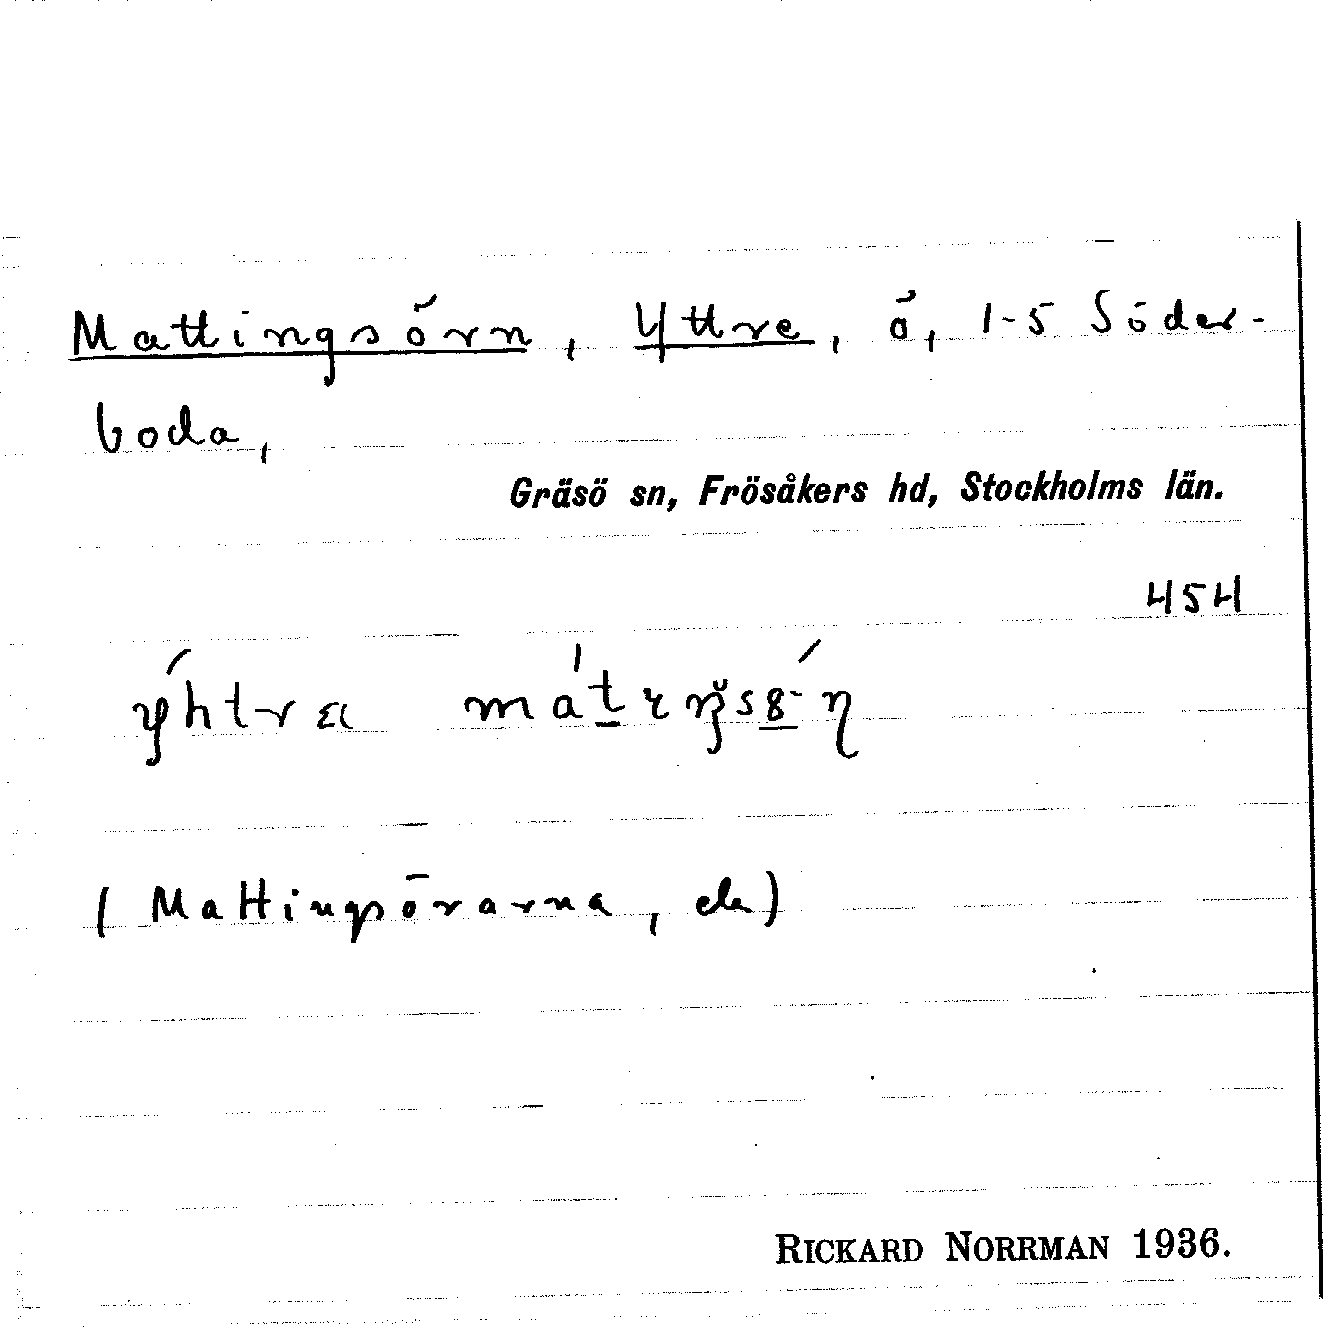 Mattingsörn, Yttre, ö, 1-5 Söder-
boda,
Gräsö sn, Frösåkers hd, Stockholms län.
454
(Mattingsörarna, de)
RICKARD NORRMAN 1936.